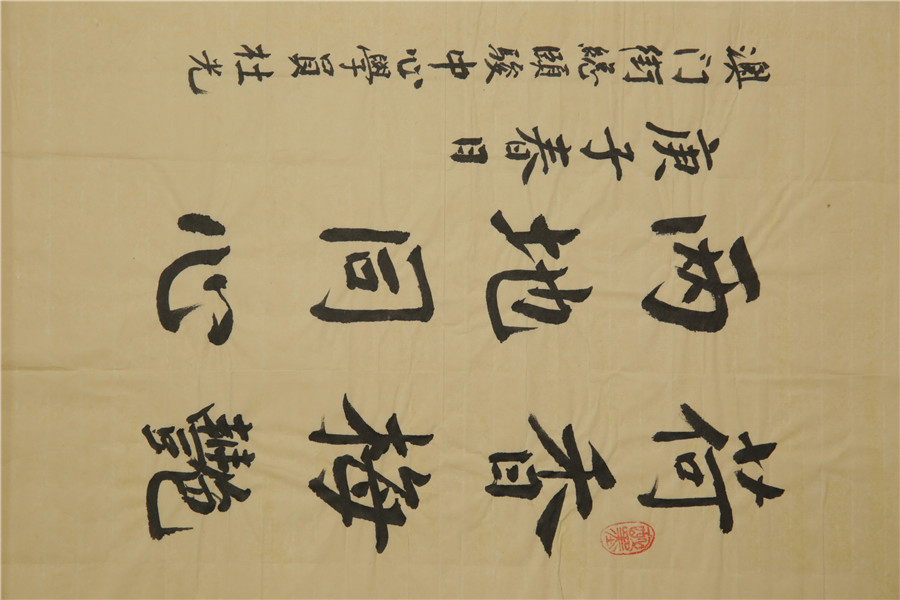 荷香梅艷
兩地同心
庚子春日
澳门街總頤駿中心學員杜光